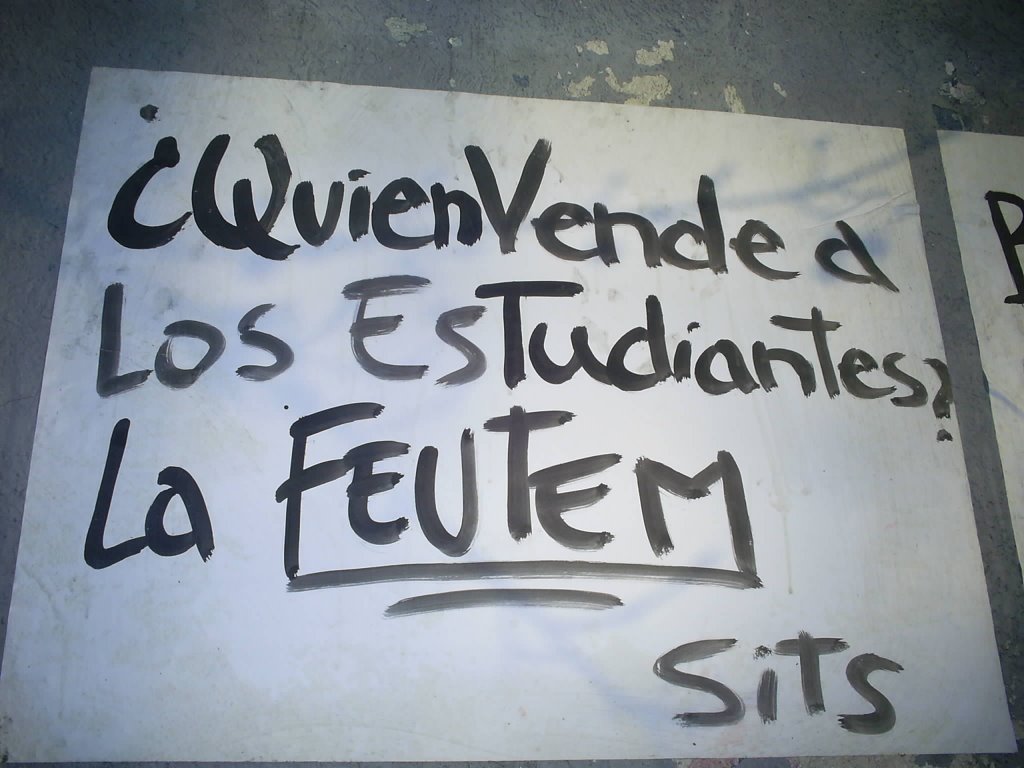 ¿Quien Vende a
Los Estudiantes?
La FEUTEM
SITS